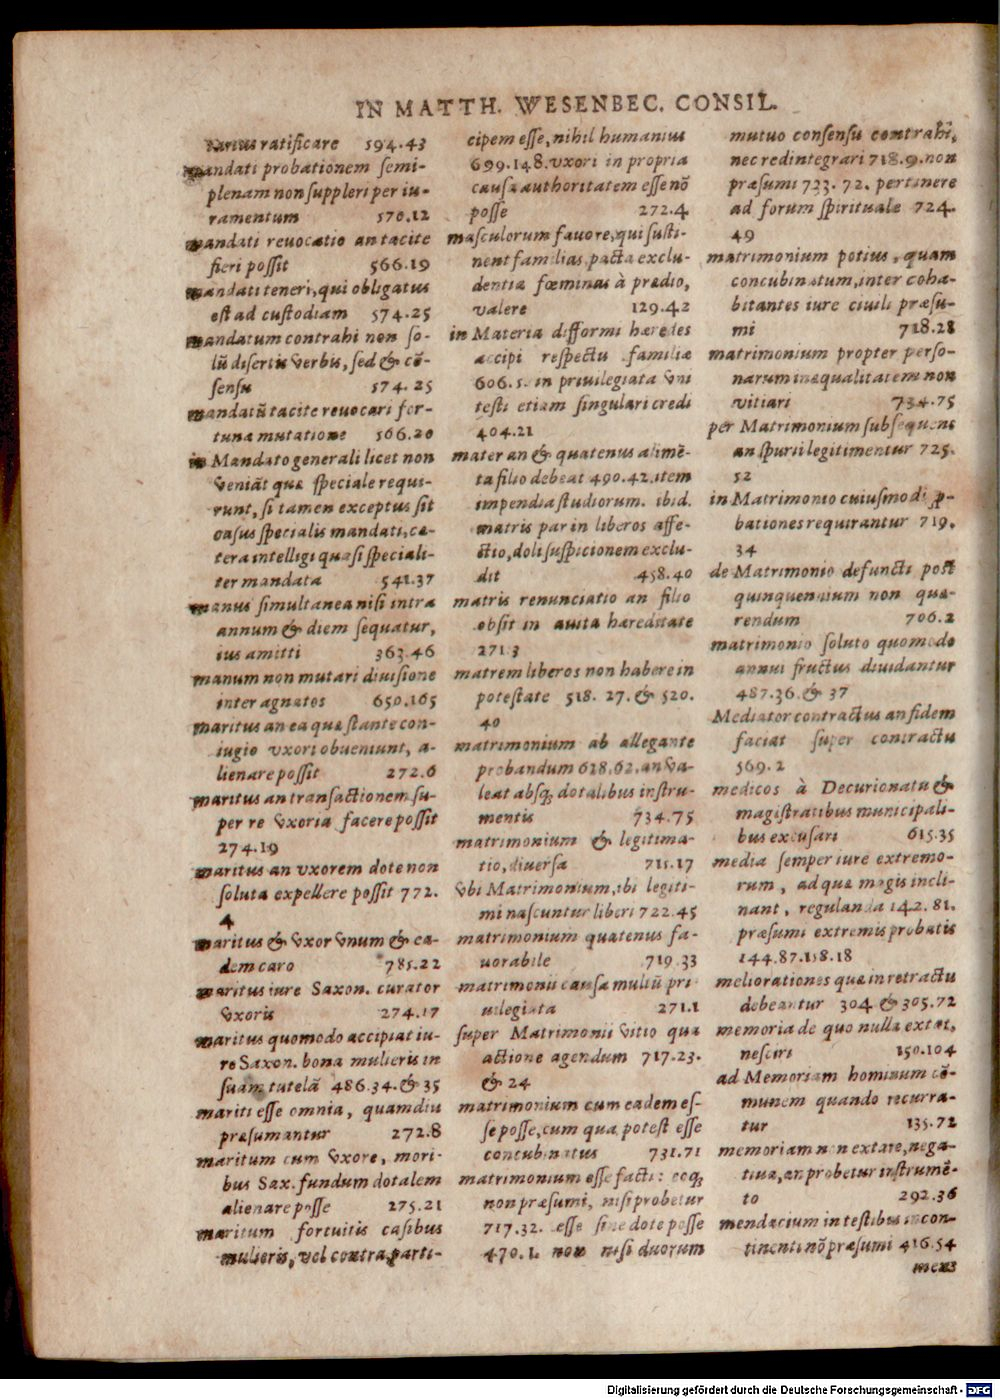 IN MATTH. WESENBEC. CONSIL.
tarius ratificare 594.43
mandati probationem semi-
plenam non suppleri per iu-
ramentum 570.12
mandati reuocatio an tacite
fieri possit 566.19
mandati teneri, qui obligatus
est ad custodiam 574.25
mandatum contrahi non so-
lũ disertis verbis, sed & cõ-
sensu 574.25
mandatũ tacite reuocari for-
tuna mutatione 566.20
in Mandato generali licet non
veniãt quæ speciale requi-
runt, si tamen exceptus sit
casus specialis mandati, cæ-
tera intelligi quasi speciali-
ter mandata 541.37
manus simultanea nisi intra
annum & diem sequatur,
ius amitti 363.46
manum non mutari diuisione
inter agnatos 650.165
maritus an ea quæ stante con-
iugio vxori obueniunt, a-
lienare possit 272.6
maritus an transactionem su-
per re vxoria facere possit
274.19
maritus an vxorem dote non
soluta expellere possit 772.
4
maritus & vxor vnum & ea-
dem caro 785.22
maritus iure Saxon. curator
vxoris 274.17
maritus quomodo accipiat iu-
re Saxon. bona mulieris in
suam tutelã 486.34. & 35
mariti esse omnia, quamdiu
præsumantur 272.8
maritum cum vxore, mori-
bus Sax. fundum dotalem
alienare posse 275.21
maritum fortuitis casibus
mulieris, vel contra, parti-
cipem esse, nihil humanius
699.148. vxori in propria
causa authoritatem esse nõ
posse 272.4
masculorum fauore, qui susti-
nent familias, pacta exclu-
dentia fœminas à prædio,
valere 129.42
in Materia difformi hæredes
accipi respectu familiæ
606.5. in priuilegiata vni
testi etiam singulari credi
404.21
mater an & quatenus alimẽ-
ta filio debeat 490.42. item
impendia studiorum. ibid.
matris par in liberos affe-
ctio, doli suspicionem exclu-
dit 458.40
matris renunciatio an filio
obsit in auita hæreditate
271.3
matrem liberos non habere in
potestate 518. 27. & 520.
40
matrimonium ab allegante
probandum 628.62. an va-
leat absq; dotalibus instru-
mentis 734.75
matrimonium & legitima-
tio, diuersa 711.17
vbi Matrimonium, ibi legiti-
mi nascuntur liberi 722.45
matrimonium quatenus fa-
uorabile 719.33
matrimonii causa multũ pri
uilegiata 271.1
super Matrimonii vitio qua
actione agendum 717.23.
& 24
matrimonium cum eadem es-
se posse, cum qua potest esse
concubinatus 731.71
matrimonium esse facti: eoq;
non præsumi, nisi probetur
717.32. esse sine dote posse
470.1. non nisi duorum
mutuo consensu contrahi,
nec redintegrari 718.9. non
præsumi 723. 72. pertinere
ad forum spirituale 724.
49
matrimonium potius, quam
concubinatum, inter coha-
bitantes iure ciuili præsu-
mi 718.28
matrimonium propter perso-
narum inæqualitatem non
vitiari 734.75
per Matrimonium subsequens
an spurii legitimentur 725.
52
in Matrimonio cuiusmodi p-
bationes requirantur 719.
34
de Matrimonio defuncti post
quinquennium non quæ-
rendum 706.2
matrimonio soluto quomodo
annui fructus diuidantur
487.36. & 37
Mediator contractus an fidem
faciat super contractu
569.2
medicos à Decurionatu &
magistratibus municipali-
bus excusari 615.35
media semper iure extremo-
rum, ad quæ magis incli-
nant, regulanda 142.81.
præsumi extremis probatis
144.87.158.18
meliorationes quæ in retractu
debeantur 304 & 305.72
memoria de quo nulla extet,
nesciri 150.104
ad Memoriam hominum cõ-
munem quando recurra-
tur 135.72
memoriam non extare, nega-
tiua, an probetur instrumẽ-
to 292.36
mendacium in testibus incon-
tinenti nõ præsumi 416.54
mens
Digitalisierung gefördert durch die Deutsche Forschungsgemeinschaft - DFG